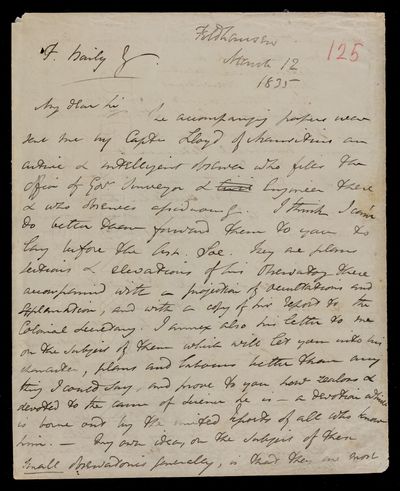 Feldhausen
125
F. Baily Esq
March 12
1835
My dear Sir
The accompanying papers were
sent me by Captn Lloyd of Mauritius an
active & intelligent observer who fills the
Office of Govt Surveyor & Civil Engineer there
& who observes assiduously. I think I can
do better than forward them to you to
lay before the Ast. Soc. They are plans
sections & elevations of his Observatory there
accompanied with a projection of occultations and
explanation, and with a copy of his report to the
Colonial Secretary. I annex also his letter to me
on the subject of them which will let you into his
character, plans and labours better than any
thing I could say, and prove to you how zealous &
devoted to the cause of science he is — a devotion which
is borne out by the united reports of all who know
him. — My own ideas on the subject of these
small observatories generally, is that they are most